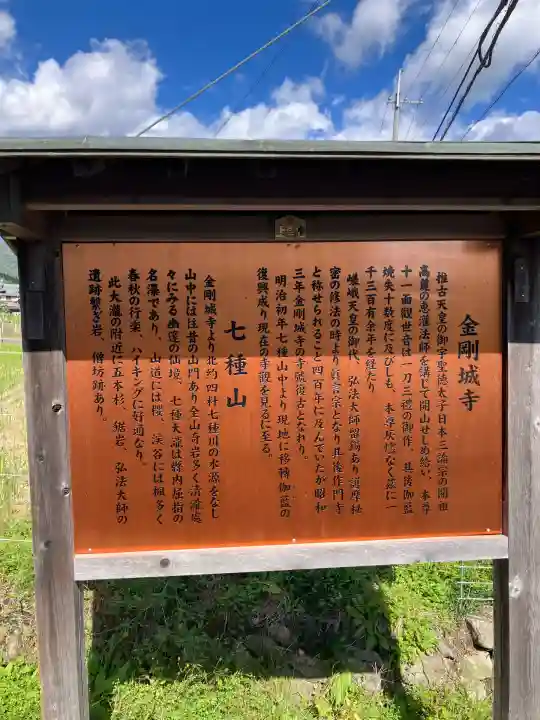 金剛城寺
推古天皇の御宇聖徳太子日本三論宗の開祖
高麗の恵灌法師を講じて開山せしめ給い、本尊
十一面観世音は一刀三禮の御作、其後伽藍
焼失十数度に及びしも、本尊灰燼なく茲に一
千三百有余年を経たり
嵯峨天皇の御代、弘法大師留錫あり護摩秘
密の修法の時より真言宗となり其後作門寺
と称せられること四百年に及んでいたが昭和
三年金剛城寺の寺號復古となれり。
明治初年七種山中より現地に移轉伽藍の
復興成り現在の寺観を見るに至る。
七種山
金剛城寺より北約四粁七種川の水源をなし
山中には往昔の山門あり全山奇岩多く清瀧處
々にみる幽邃の仙境、七種大瀧は縣内屈指の
名瀑であり、山道には櫻、渓谷には楓多く
春秋の行楽、ハイキングに好適なり。
此大瀧の附近に五本杉、鋸岩、弘法大師の
遺跡繋ぎ岩、僧坊跡あり。